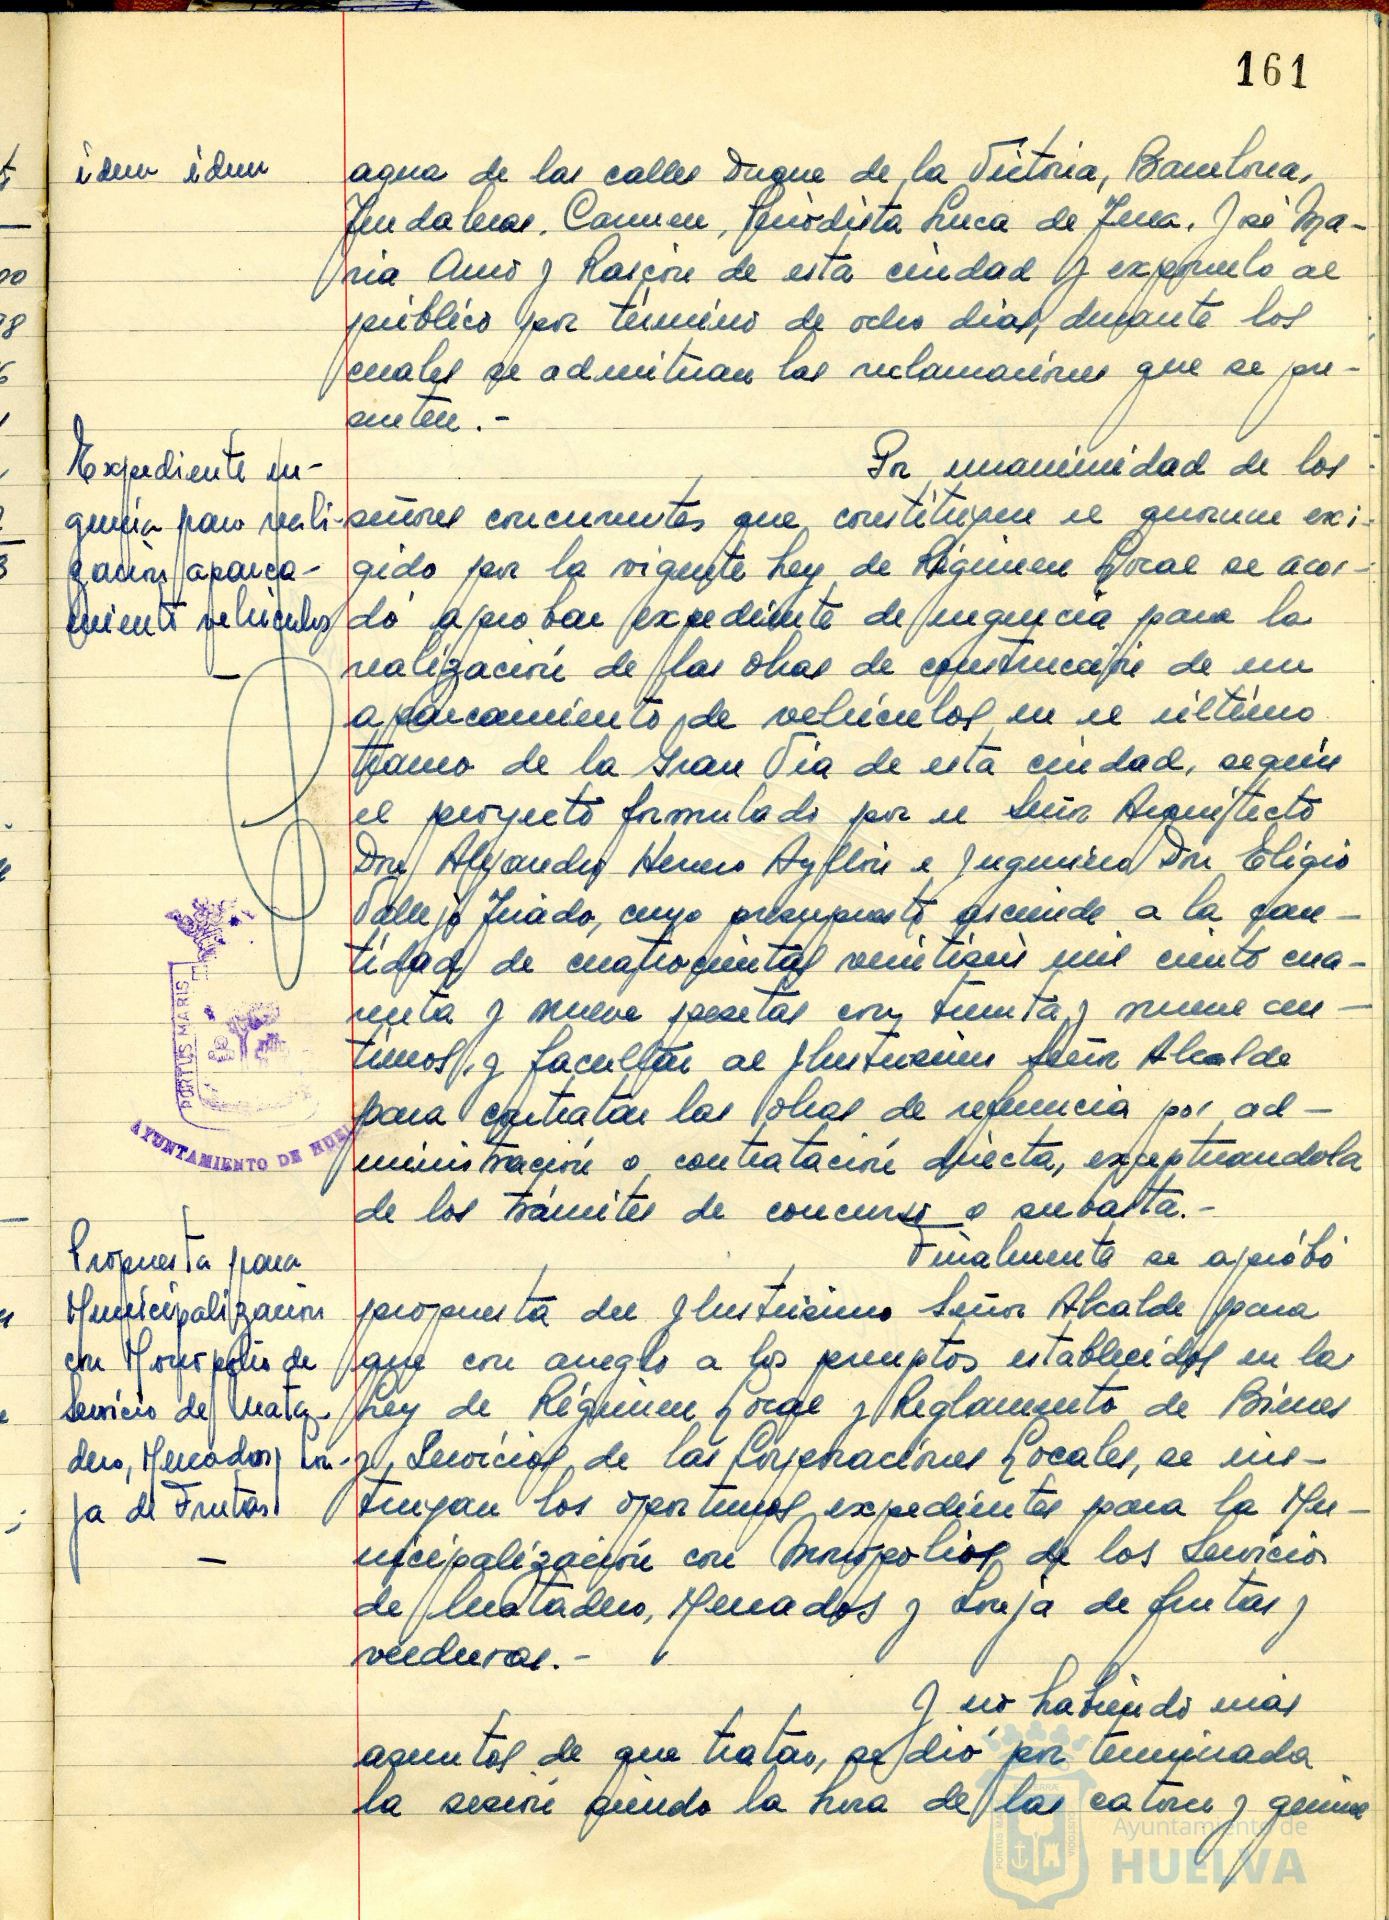 161
idem idem
agua de las calles Duque de la Victoria, Barcelona,
Jendaleras, Carmen, Periodista Luca de Tena, José Ma-
ria Amo y Rascón de esta ciudad y exponerlo al
público por término de ocho dias, durante los
cuales se admitiran las reclamaciones que se pre-
senten.-
Expediente ur-
gencia para reali-
zación aparca-
miento vehículos
-
Por unanimidad de los
señores concurrentes que constituyen el quorum exi-
gido por la vigente Ley de Régimen Local se acor-
dó aprobar expediente de urgencia para la
realización de las obras de construcción de un
aparcamiento de vehículos en el último
tramo de la Gran Via de esta ciudad, según
el proyecto formulado por el Señor Arquitecto
Don Alejandro Herrero Ayllón e Ingeniero Don Eligio
Vallejo Jurado, cuyo presupuesto asciende a la can-
tidad de cuatrocientas veintiseis mil ciento cua-
renta y nueve pesetas con treinta y nueve cen-
timos, y facultar al Ilustrisimo Señor Alcalde
para contratar las obras de referencia por ad-
ministración o contratación directa, exceptuandola
de los trámites de concurso o subasta.-
PORTUS MARIS
AYUNTAMIENTO DE HUEL
Propuesta para
Municipalización
con Monopolio de
Servicio de Mata-
dero, Mercados y Lon-
ja de Frutas
-
Finalmente se aprobó
propuesta del Ilustrisimo Señor Alcalde para
que con arreglo a los preceptos establecidos en la
Ley de Régimen Local y Reglamento de Bienes
y Servicios de las Corporaciones Locales, se ins-
truyan los oportunos expedientes para la Mu-
nicipalización con Monopolios de los Servicios
de Matadero, Mercados y Lonja de frutas y
verduras.-
Y no habiendo más
asuntos de que tratar, se dió por terminada
la sesión siendo la hora de las catorce y quince
Ayuntamiento de
HUELVA